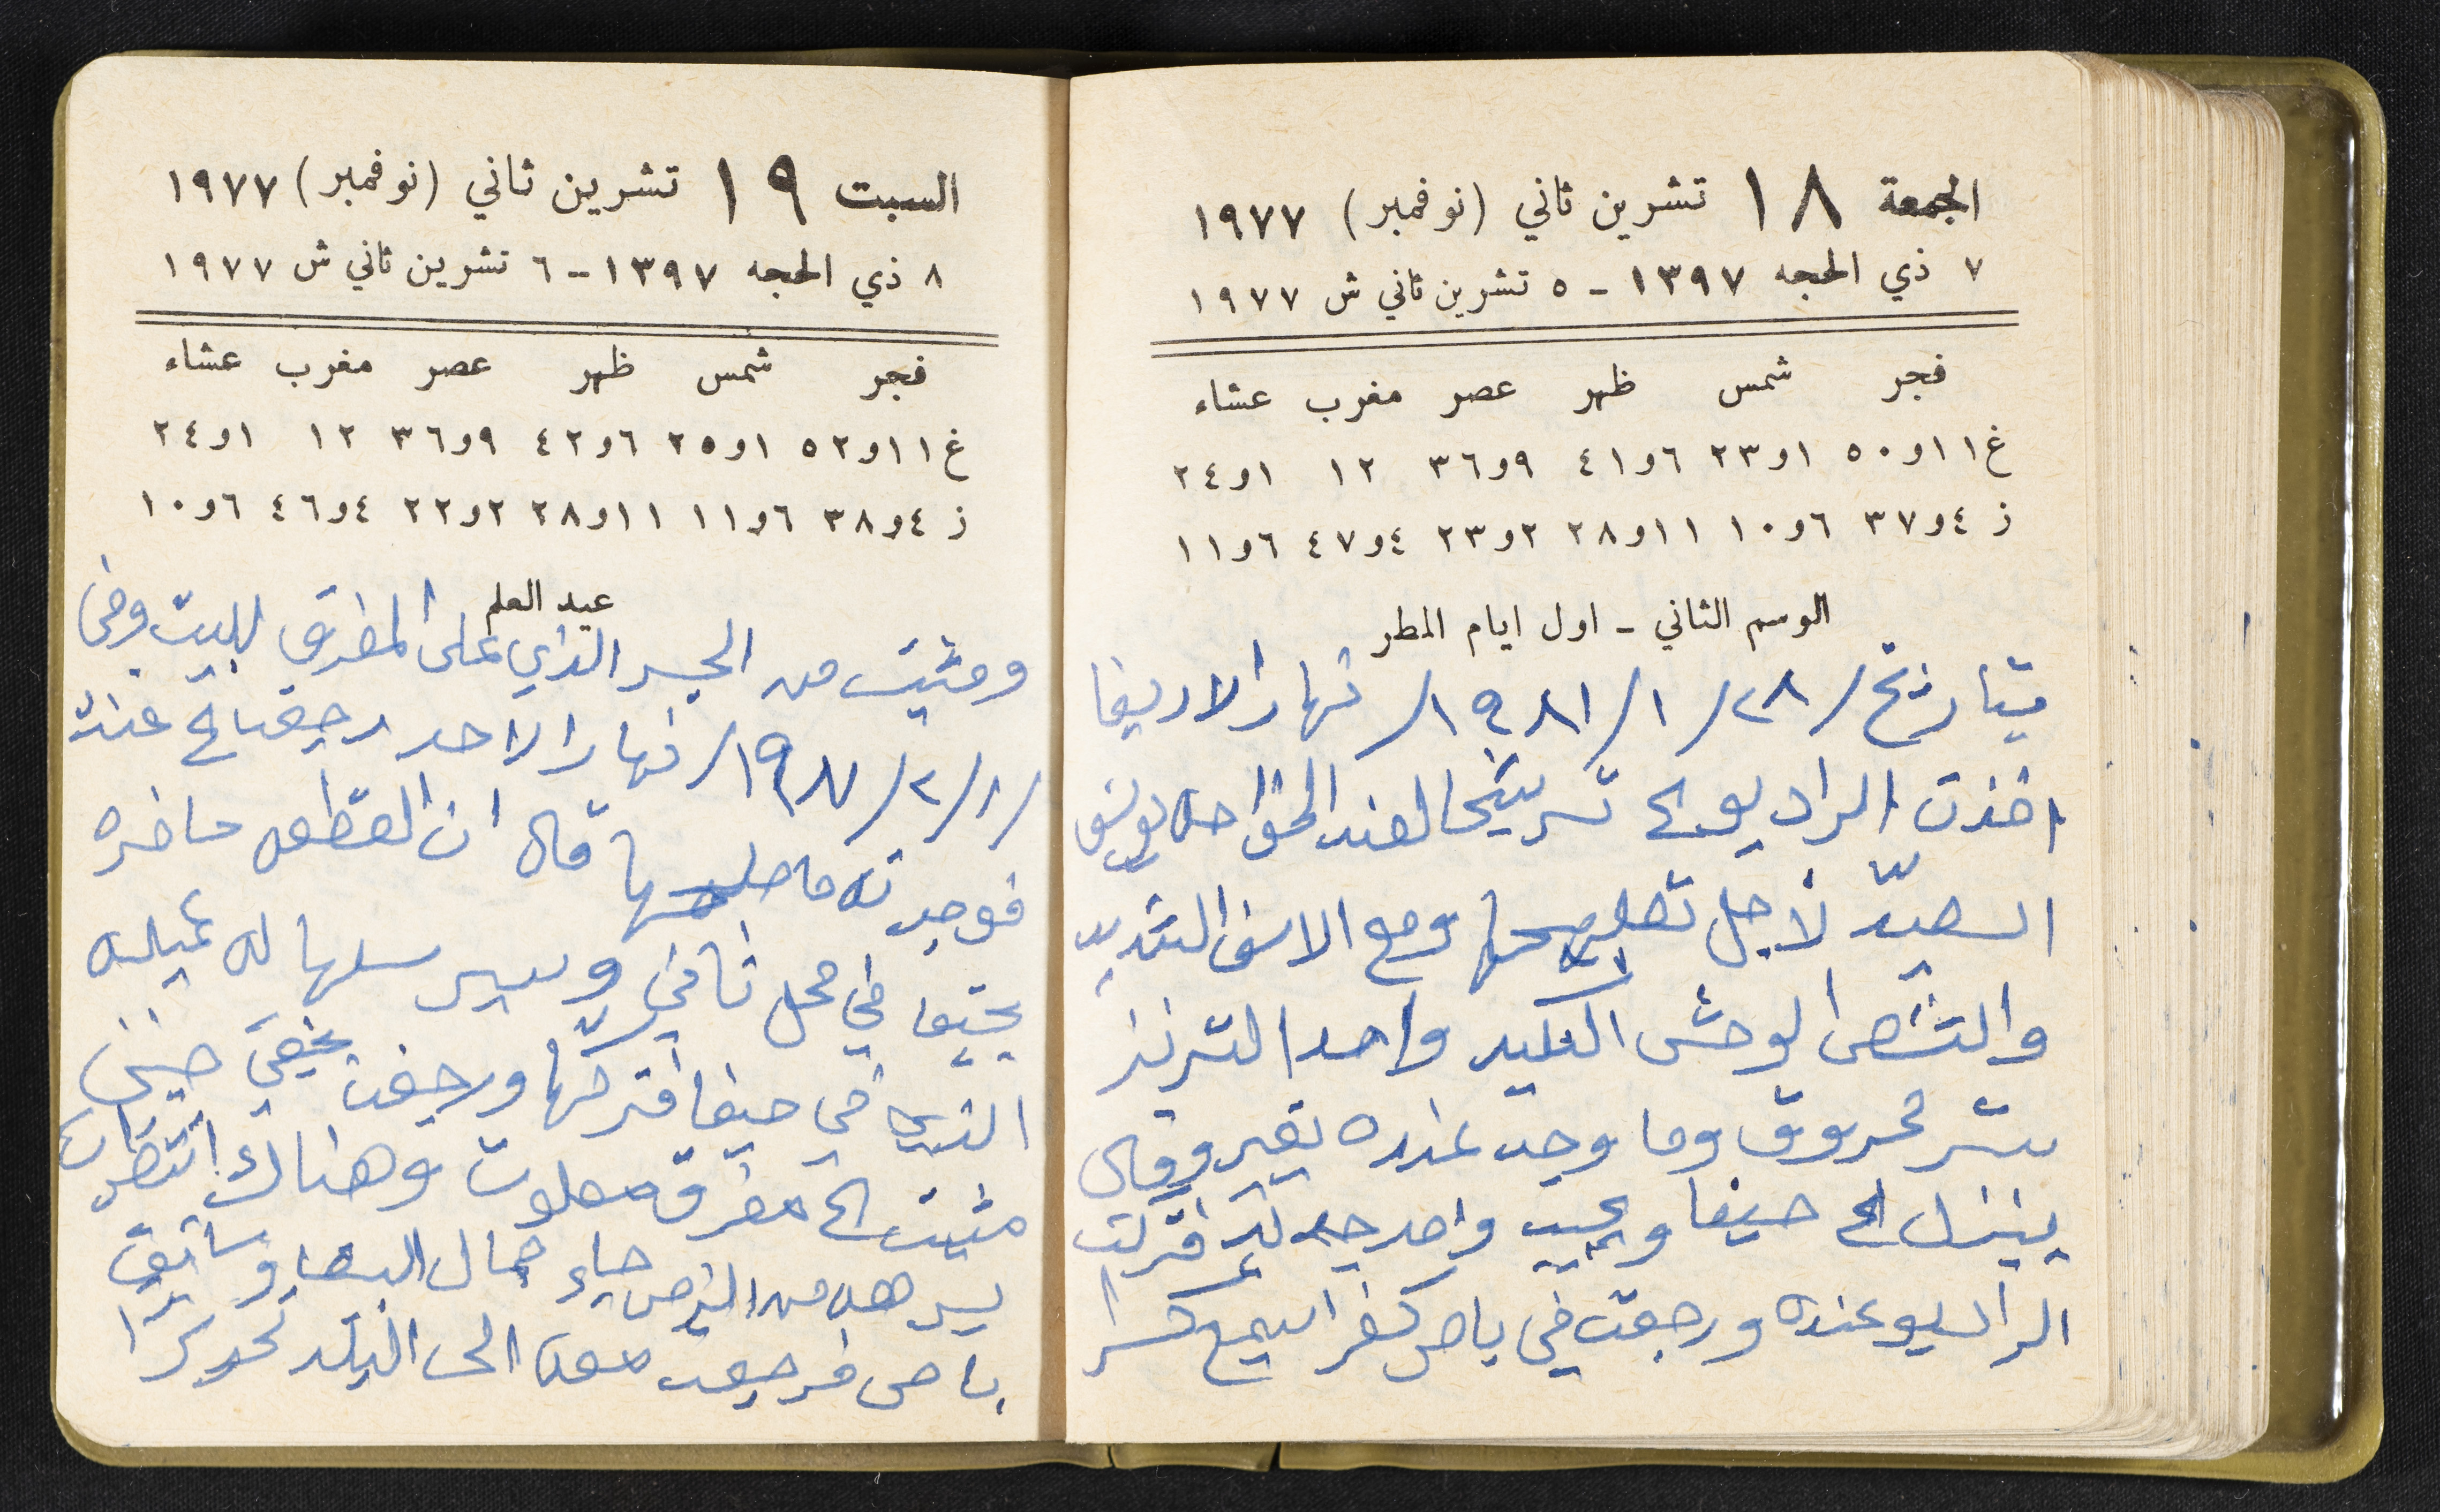 الجمعة ١٨ تشرين ثاني (نوفمبر) ١٩٧٧
٧ ذي الحجه ١٣٩٧ - ٥ تشرين ثاني ش ١٩٧٧
فجر شمس ظهر عصر مغرب عشاء
غ ١١و٥٠ ١و٢٣ ٦و٤١ ٩و٣٦ ١٢ ١و٢٤
ز ٤و٣٧ ٦و١٠ ١١و٢٨ ٢و٢٣ ٤و٤٧ ٦و١١
الوسم الثاني - اول ايام المطر
بتاريخ /٢٨/١/١٩٨١/ نهار الاربعا
اخذت الراديو الى ترشيحا لعند الخواجه
لأجل تصليحها ومع الاسف الشديد
واحد الترنز
ستر محروق وما وجد عنده غير وقال
ينزل الى حيفا ويجيب واحد جديد فتركت
الراديو عنده ورجعت في باص كفر اسميع
السبت ١٩ تشرين ثاني (نوفمبر) ١٩٧٧
٨ ذي الحجه ١٣٩٧ - ٦ تشرين ثاني ش ١٩٧٧
فجر شمس ظهر عصر مغرب عشاء
غ ١١و٥٢ ١و٢٥ ٦و٤٢ ٩و٣٦ ١٢ ١و٢٤
ز ٤و٣٨ ٦و١١ ١١و٢٨ ٢و٢٢ ٤و٤٦ ٦و١٠
عيد العلم
ومشيت من الجسر الذي على المفرق للبيت وفي
/١/٢/١٩٨١/ نهار الاحد رجعت الى عنده
فوجدته ما صلحها قال ان القطعه حاضره
في محل ثاني وسيرسلها له عميله
الذي في حيفا فتركتها ورجعت
مشيت الى مفرق معلوت وهناك انتظرت
من الزمن جاء جمال وسايق
باص فرجعت معه الى البلد